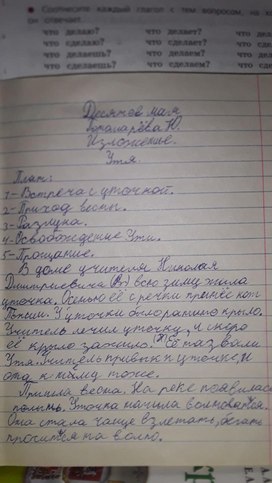 Соотнесите каждый глагол с тем вопросом, на
он отвечает.
что делаю? что делает? что
что сделаю? что сделает? что
что делаешь? что делаем? что
что сделаешь? что сделаем? что
Десятое мая
Изложение.
Утя.
План:
1-Встреча с уточкой.
2-Приход весны.
3-Разлука.
4-Освобождение Ути.
5-Прощание.
В доме учителя Николая
Дмитриевича всю зиму жила
уточка. Осенью её с речки принёс кот
У уточки было ранено крыло.
Учитель лечил уточку, и скоро
её крыло зажило. Её назвали
Утя. Учитель привык к уточке, и
она к нему тоже.
Пришла весна. На реке появилась
полынь. Уточка начила волноватся.
Она стала чаще взлетать,
проситься на волю.